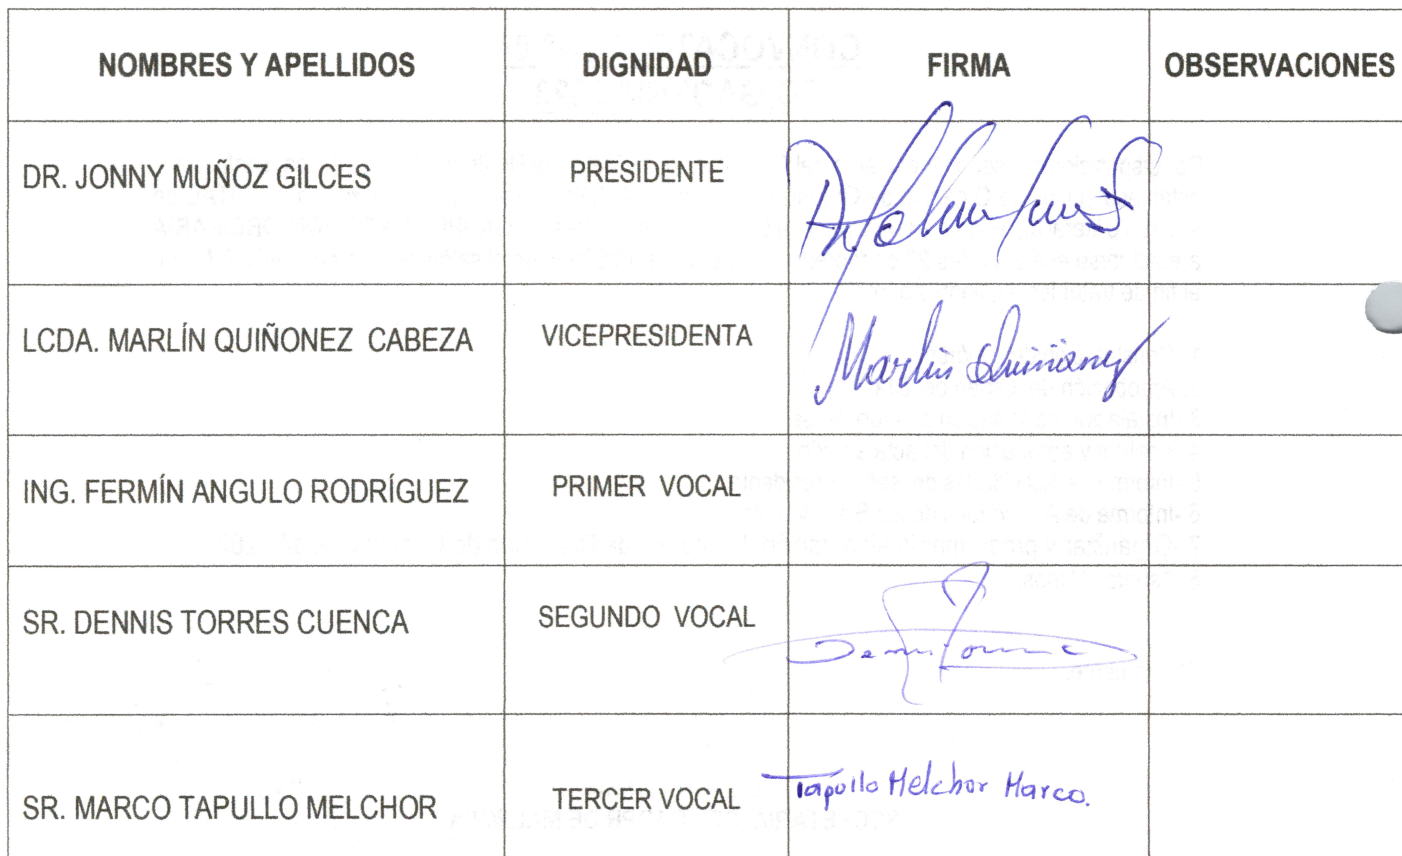 NOMBRES Y APELLIDOS DIGNIDAD FIRMA OBSERVACIONES
DR. JONNY MUÑOZ GILCES PRESIDENTE
LCDA. MARLÍN QUIÑONEZ CABEZA VICEPRESIDENTA Marlin Quiñonez
ING. FERMÍN ANGULO RODRÍGUEZ PRIMER VOCAL
SR. DENNIS TORRES CUENCA SEGUNDO VOCAL
SR. MARCO TAPULLO MELCHOR TERCER VOCAL Tapullo Melchor Marco.